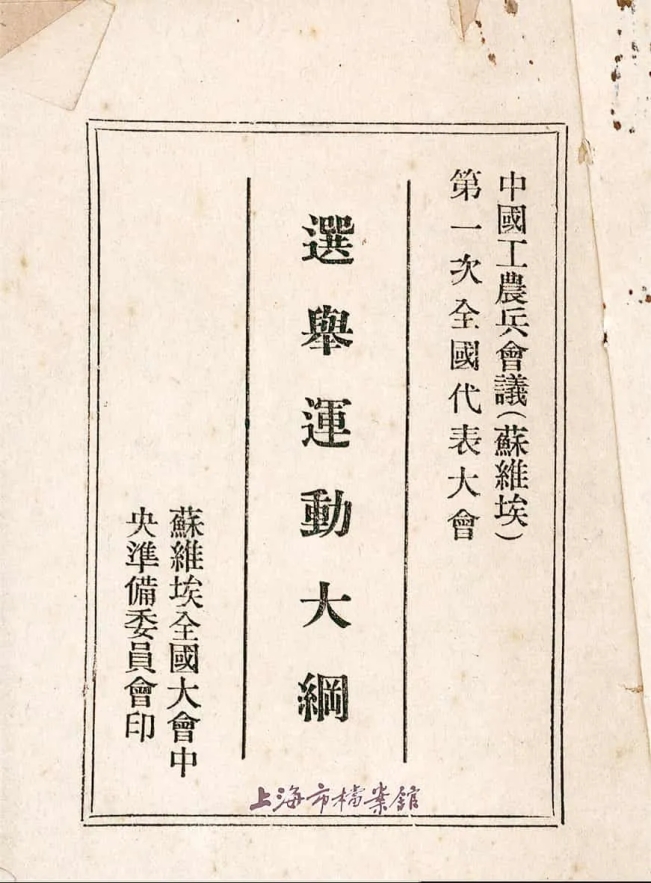 中國工農兵會議(蘇維埃)
第一次全國代表大會
選舉運動大綱
蘇維埃全國大會中
央準備委員會印
上海市檔案館